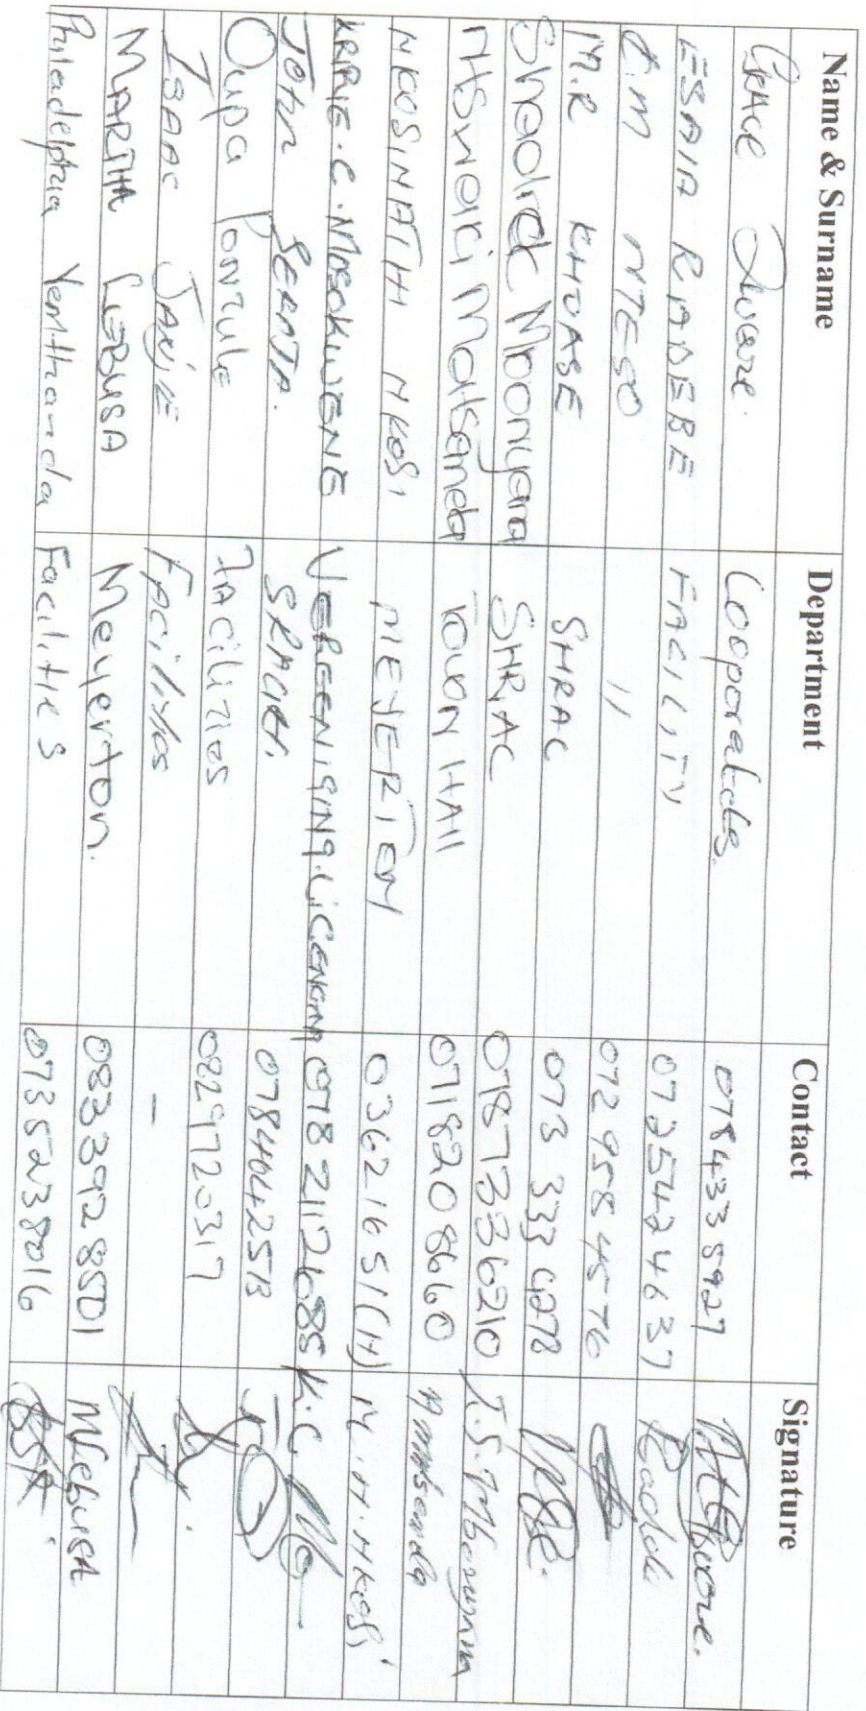 Name & Surname Department Contact Signature
Grace Cooporates. 0784338927
ESAIA RADEBE FACILITY 0725424637 Radebe
C.M NTESO 11 072 958 4576
M.R KHOASE SHRAC 073 333 4278
Shadrack Mbonyana SHRAC 0787336210 T.S. Mbonyana
Matsaneda TOWN HAll 0718208660
NKOSINATHI NKOSI MEYERTON 03621651(H) N.H.NKOSI
VEREENIGING.LICENSING 0782112685 K.C
JOHN SERATA. SRACH. 0784042513
Oupa Facilities 0829720317
ISAAC JANJIE FACilities -
MARTHA LEBUSA Meyerton. 0833928501 MLEBUSA
Philadelphia Facilities 0735238016